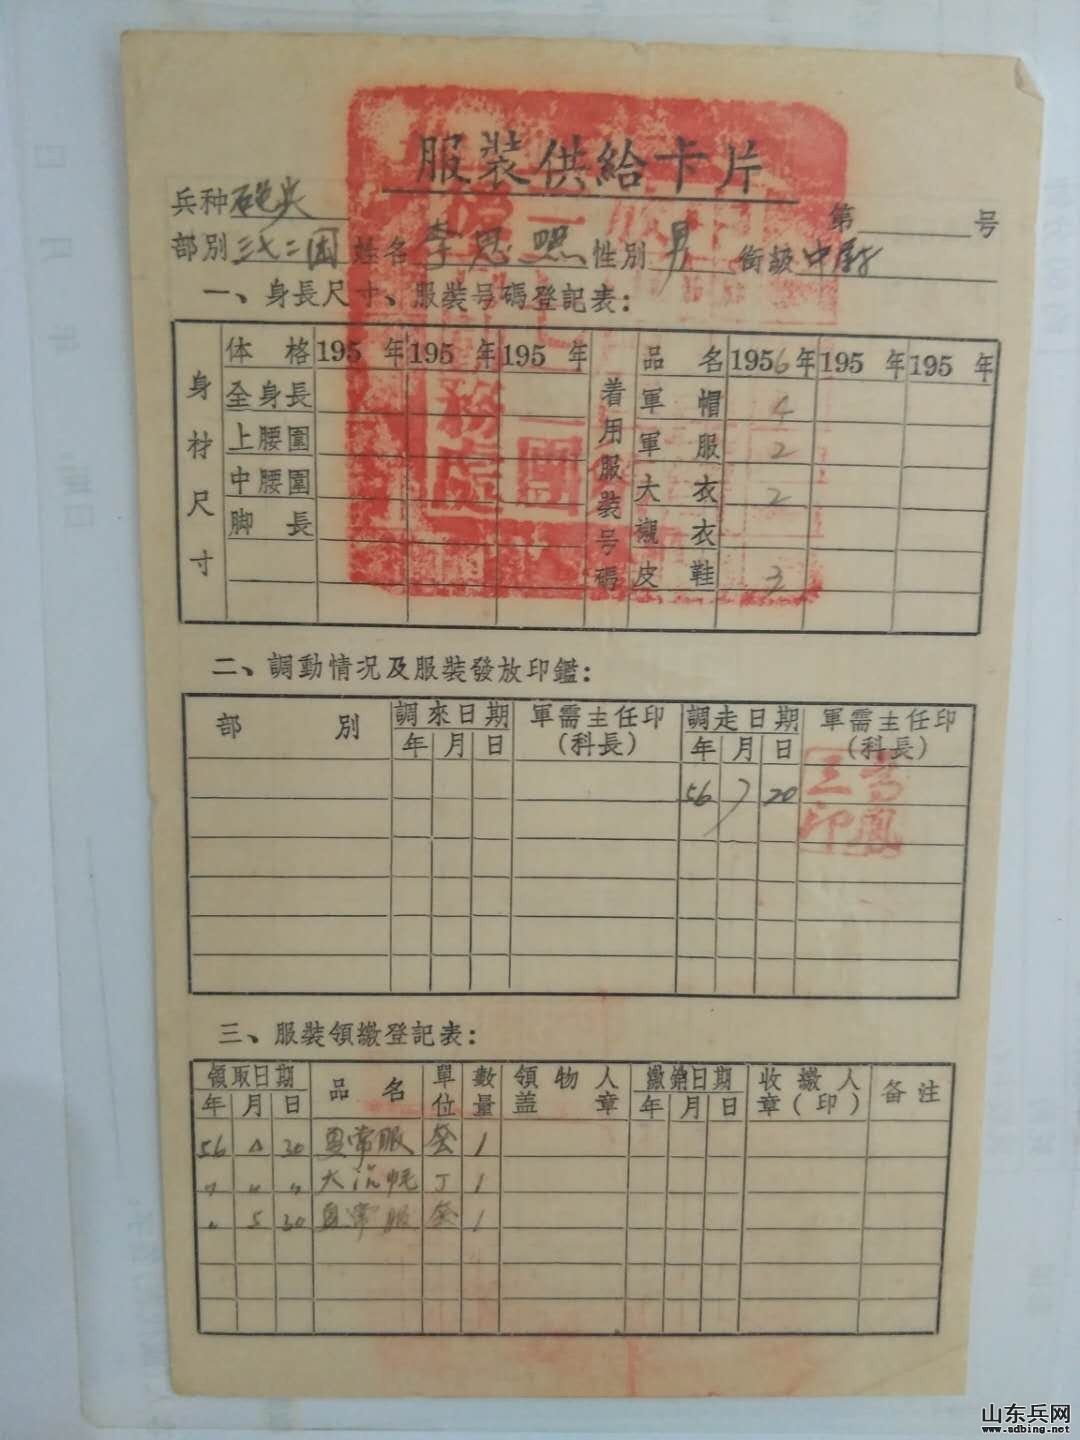 服裝供給卡片
兵种 砲兵 第 号
部別 三七二団 姓名 李思照 性別 男 銜級 中尉
一、身長尺寸、服裝号碼登記表：
身材尺寸 体格 195 年 195 年 195 年 着用服裝号碼 品名 1956年 195 年 195 年
全身長 軍帽 4
上腰圍 軍服 2
中腰圍 大衣 2
脚長 襯衣
皮鞋 3
二、調動情况及服裝發放印鑑：
部別 調來日期 軍需主任印 調走日期 軍需主任印
年 月 日 (科長) 年 月 日 (科長)
56 7 20
三、服裝領繳登記表：
領取日期 品名 單位 數量 領物人蓋章 繳銷日期 收繳人章(印) 备注
年 月 日 年 月 日
56 4 30 夏常服 套 1
〃 〃 〃 大沿帽 丁 1
〃 5 30 夏常服 套 1
務處
團
印
山东兵网
www.sdbing.net